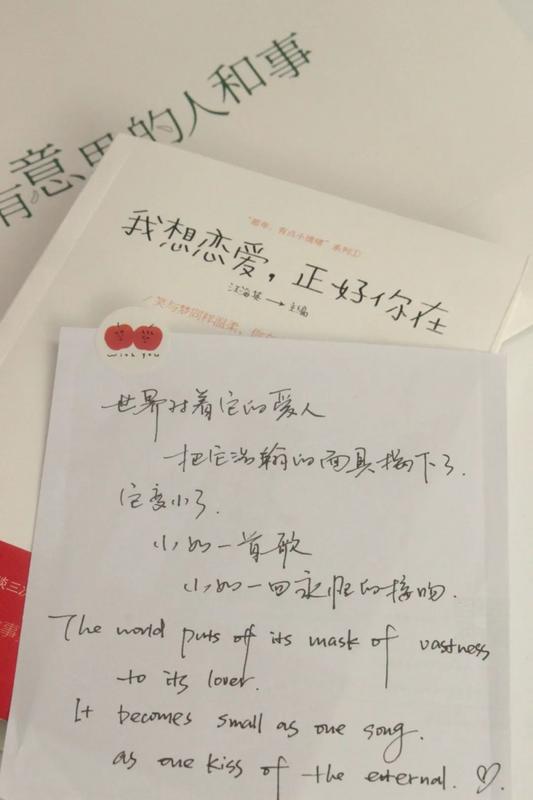 有意思的人和事
"那年，有点小情绪"系列①
我想恋爱，正好你在
汪海基→主编
笑与梦同样温柔，你
with you
世界对着它的爱人
把它浩翰的面具揭下了.
它变小了.
小如一首歌
小如一回永恒的接吻.
The world puts off its mask of vastness
to its lover.
It becomes small as one song.
as one kiss of the eternal. ♡.
谈三次
事